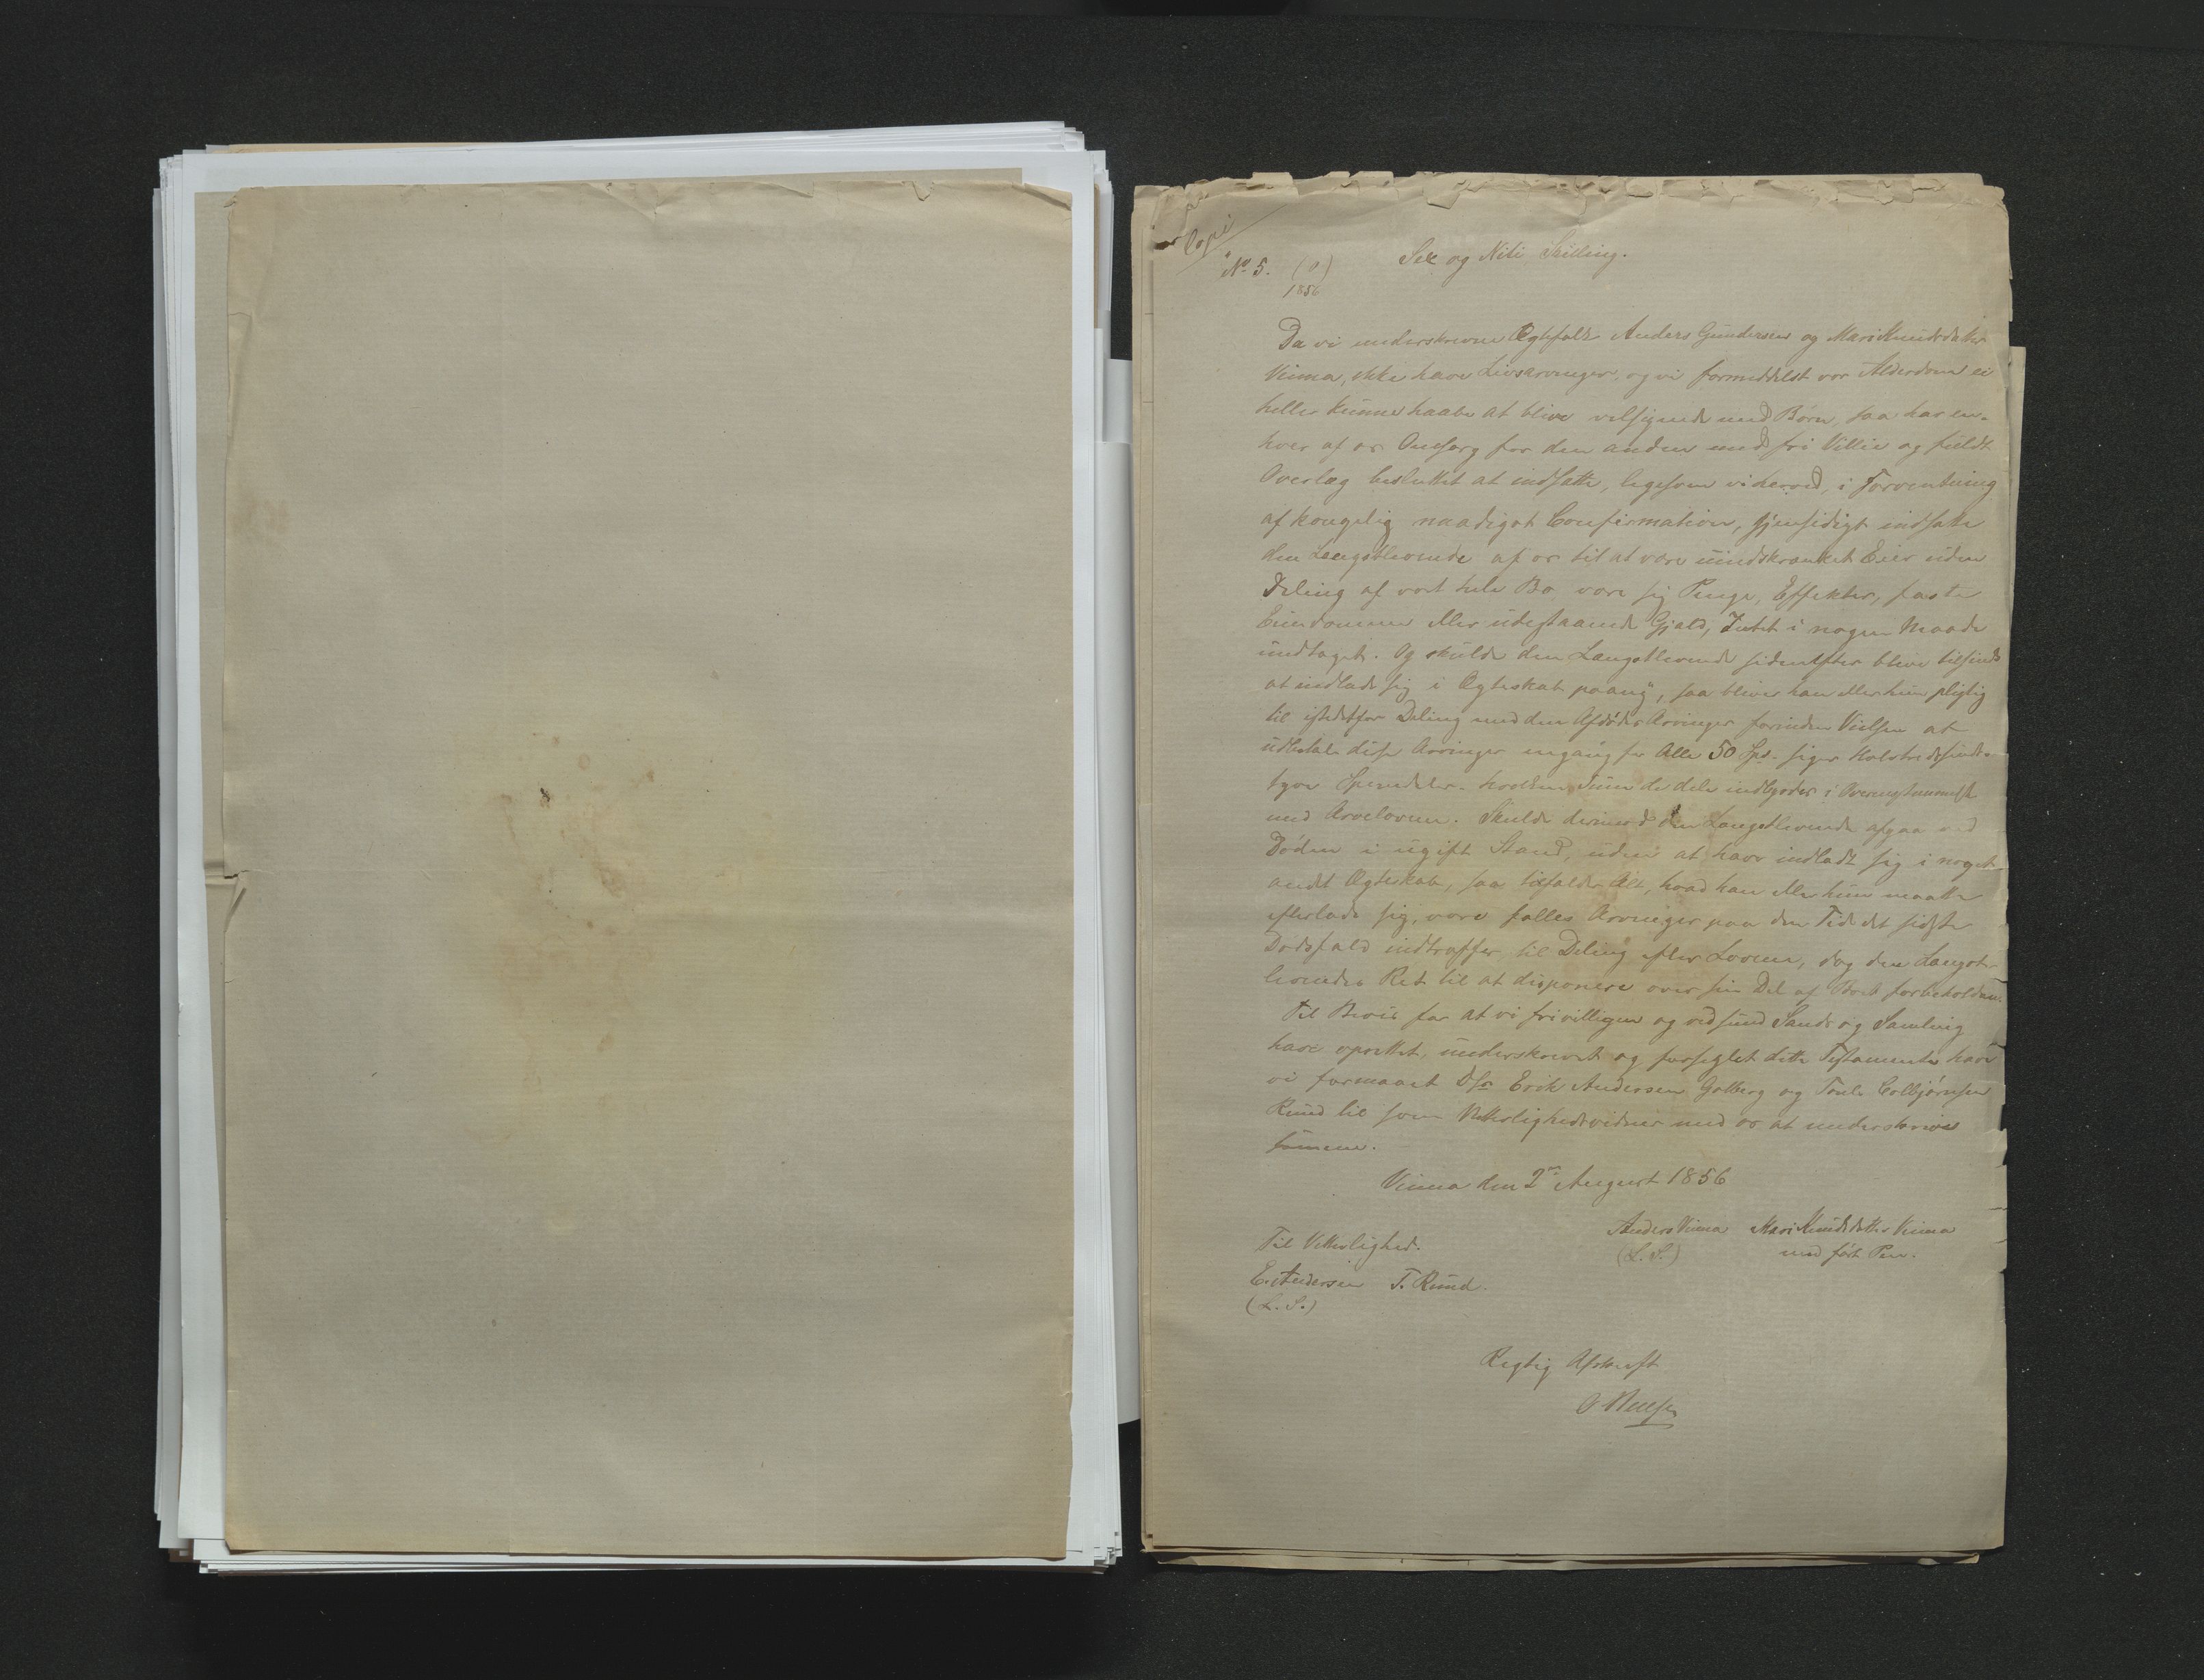 Copi
No 5. (0) Sex og Niti Skilling.
1856
Da vi underskrevne Ægtefolk Anders Gundersen og Mari Knudsdatter
Vinna, ikke have Livsarvinger, og vi formeddelst vor Alderdom ei
heller kunne haabe at blive velsignede med Børn, saa har en-
hver af os Omsorg for den anden med fri Villie og fuldt
Overlæg besluttet at indsætte, ligesom vi herved, i Forventning
af kongelig naadigst Confirmation, gjensidigt indsætte
den Længstlevende af os til at være uindskrænket Eier uden
Deling af vort hele Bo være sig Penge, Effekter, faste
Eiendomme eller udestaaende Gjæld, Intet i nogen Maade
undtaget. Og skulde den Længstlevende sidenefter blive tilsinds
at indlade sig i Ægteskab paany, saa bliver han eller hun pligtig
til istedetfor Deling med den Afdødes Arvinger forinden Vielsen at
udbetale disse Arvinger engang for Alle 50 Spd. siger Halvtredsinds-
tyve Speciedaler. hvilken Sum de dele indbyrdes i Overensstemmelse
med Arveloven. Skulde derimod den Længstlevende afgaa ved
Døden i ugift Stand, uden at have indladt sig i noget
andet Ægteskab, saa tilfalder Alt, hvad han eller hun maatte
efterlade sig, vore fælles Arvinger paa den Tid det sidste
Dødsfald indtræffer, til Deling efter Loven, dog den Længst-
levendes Ret til at disponere over sin Del af Boet forbeholden.
Til Bevis for at vi frivilligen og ved sund Sands og Samling
have oprettet, underskrevet og forseglet dette Testamente have
vi formaaet Dhr Erik Andersen Golberg og Tonle Colbjørnsen
Rund til som Vitterlighedsvidner med os at underskrive
samme.
Vinna den 2en August 1856
Anders Vinna Mari Knudsdatter Vinna
(L. S.) med ført Pen.
Til Vitterlighed.
E. Andersen T. Rund.
(L. S.)
Rigtig Afskrift